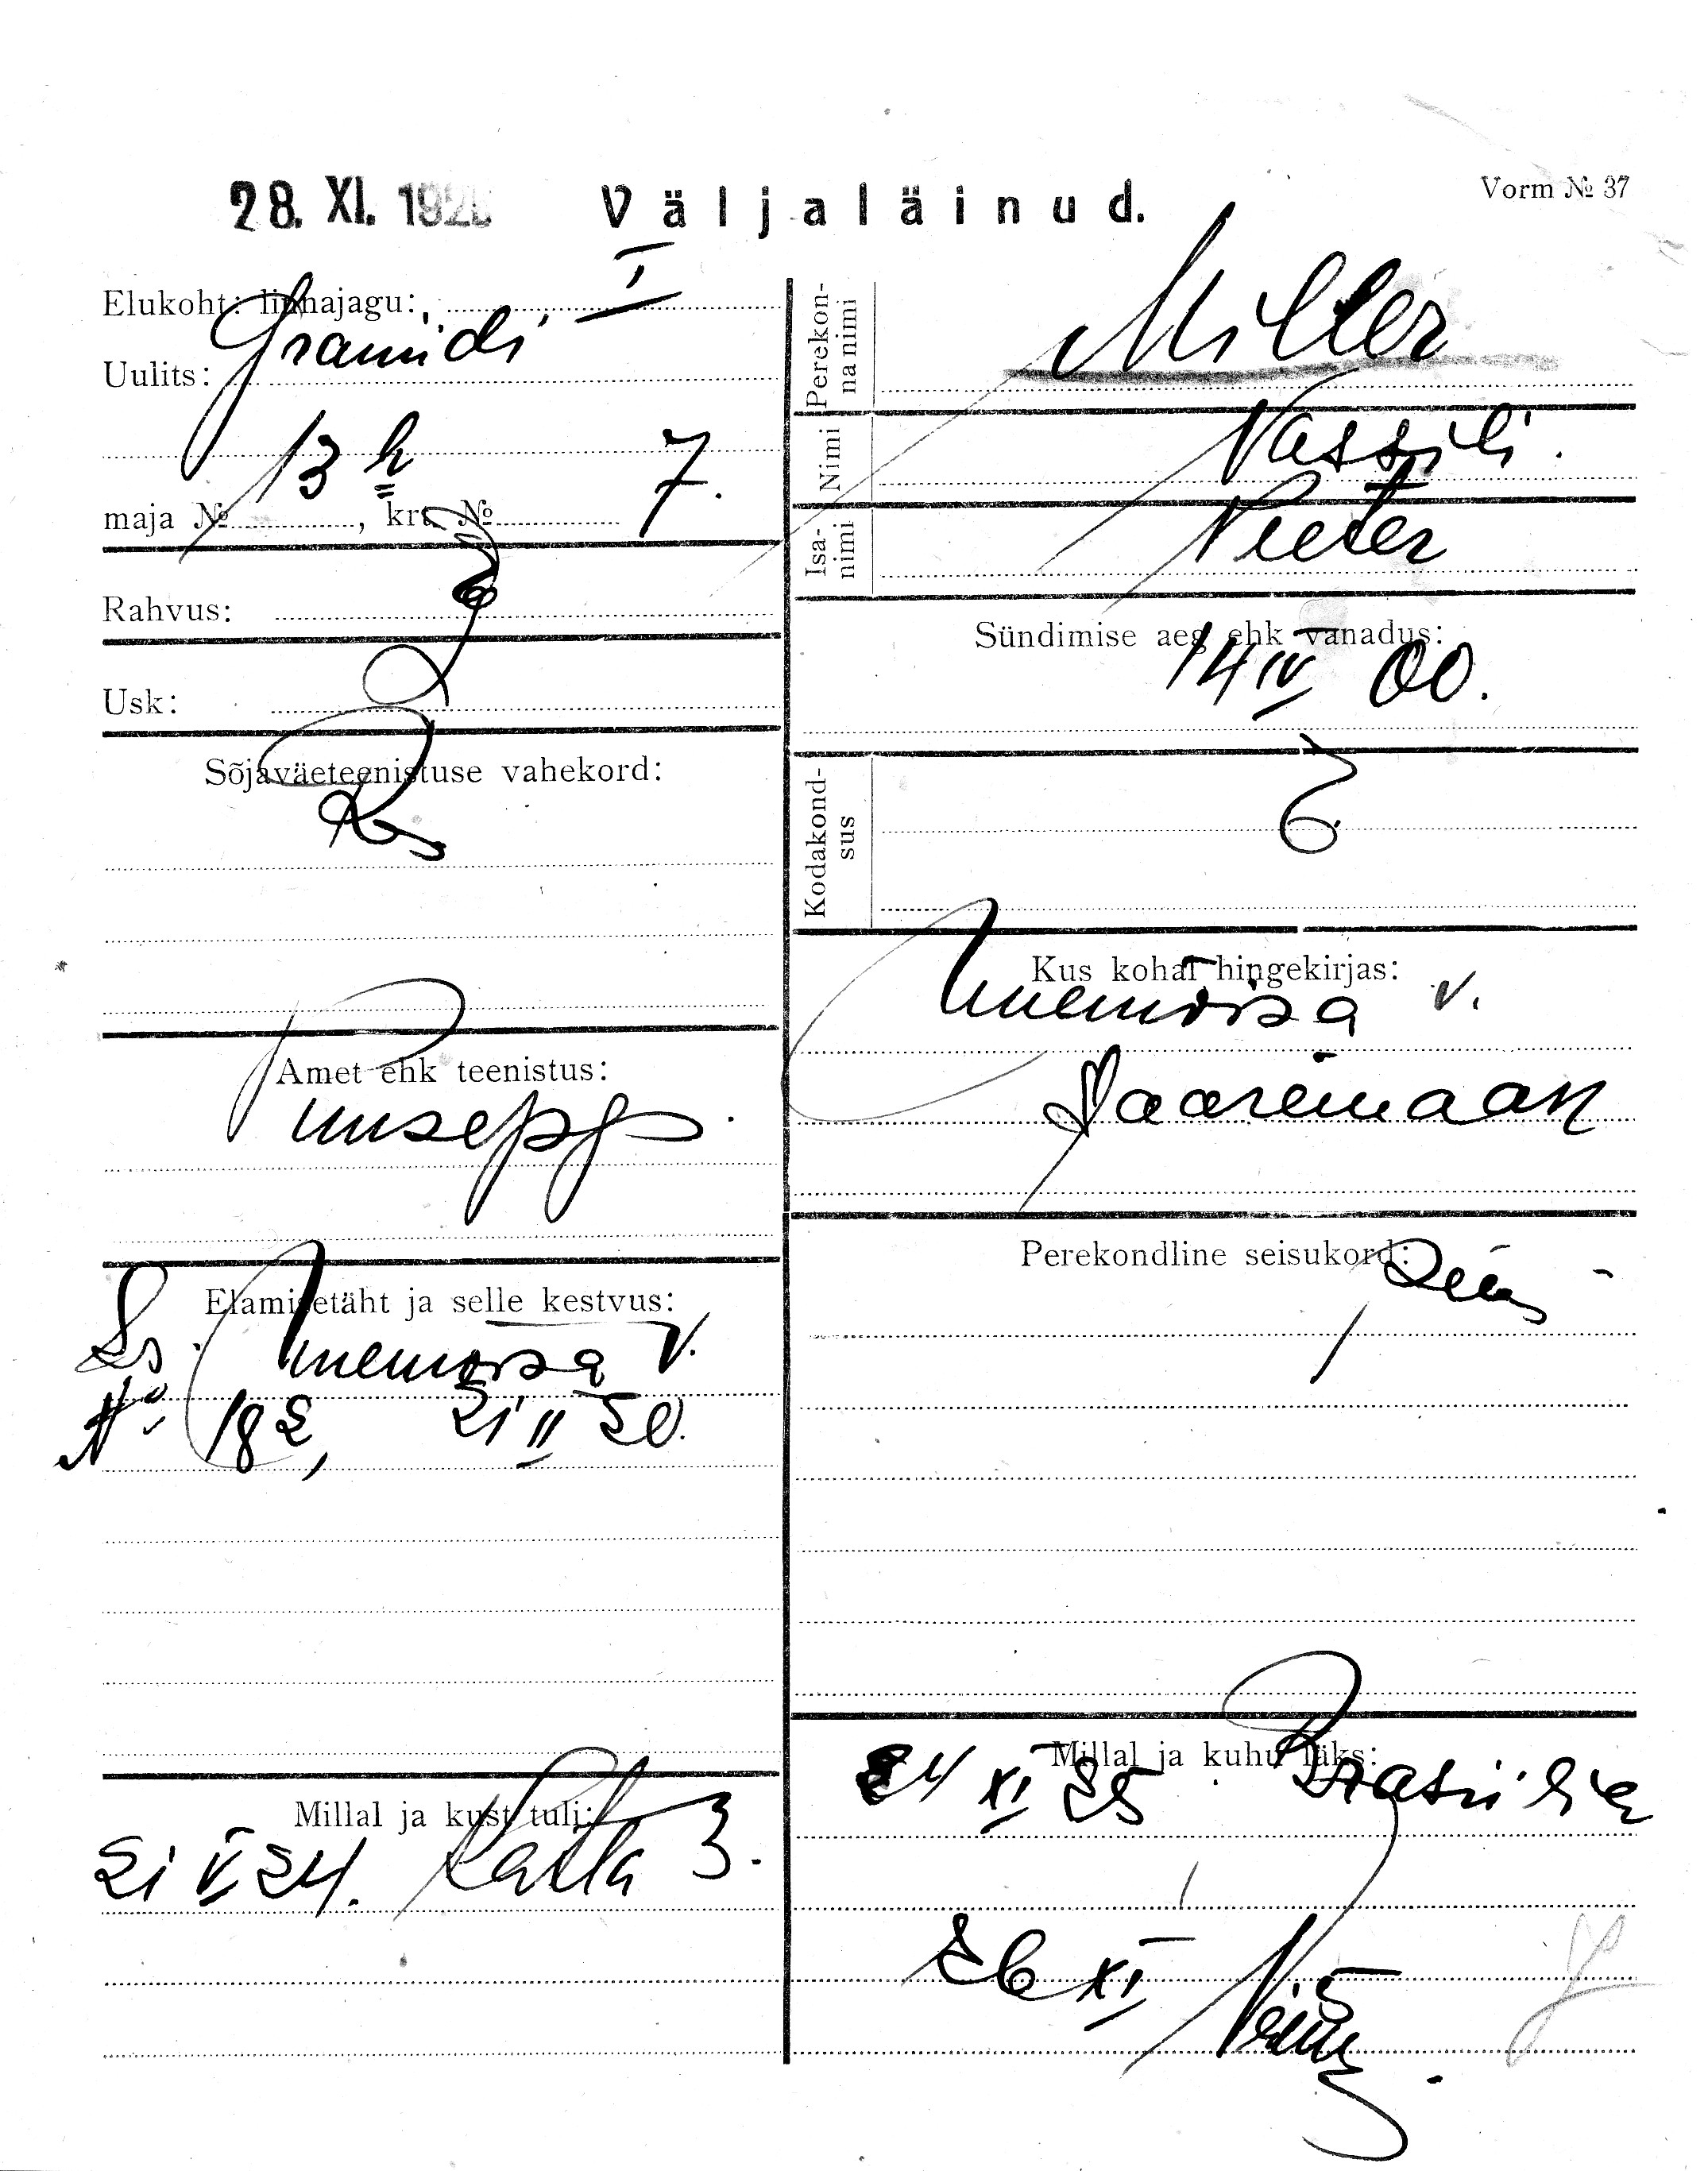 28. XI. 192
Väljaläinud.
Vorm № 37
Elukoht: linnajagu: I
Uulits: Graniidi
maja № 13 h, krt. № 7.
Rahvus:
Usk:
Sõjaväeteenistuse vahekord:
Res
Amet ehk teenistus:
puusepp.
Elamisetäht ja selle kestvus:
v.
№ 182, 21 II 20.
Millal ja kust tuli:
21 V 24. Kalla 3.
Perekonnanimi
Miller
Nimi
Vassili.
Isanimi
Peeter
Sündimise aeg ehk vanadus:
14 IV 00.
Kodakondsus
E.
Kus kohal hingekirjas:
v.
Saaremaa
Perekondline seisukord:
Millal ja kuhu läks:
24 XI 25 Brasiilia
26 XI